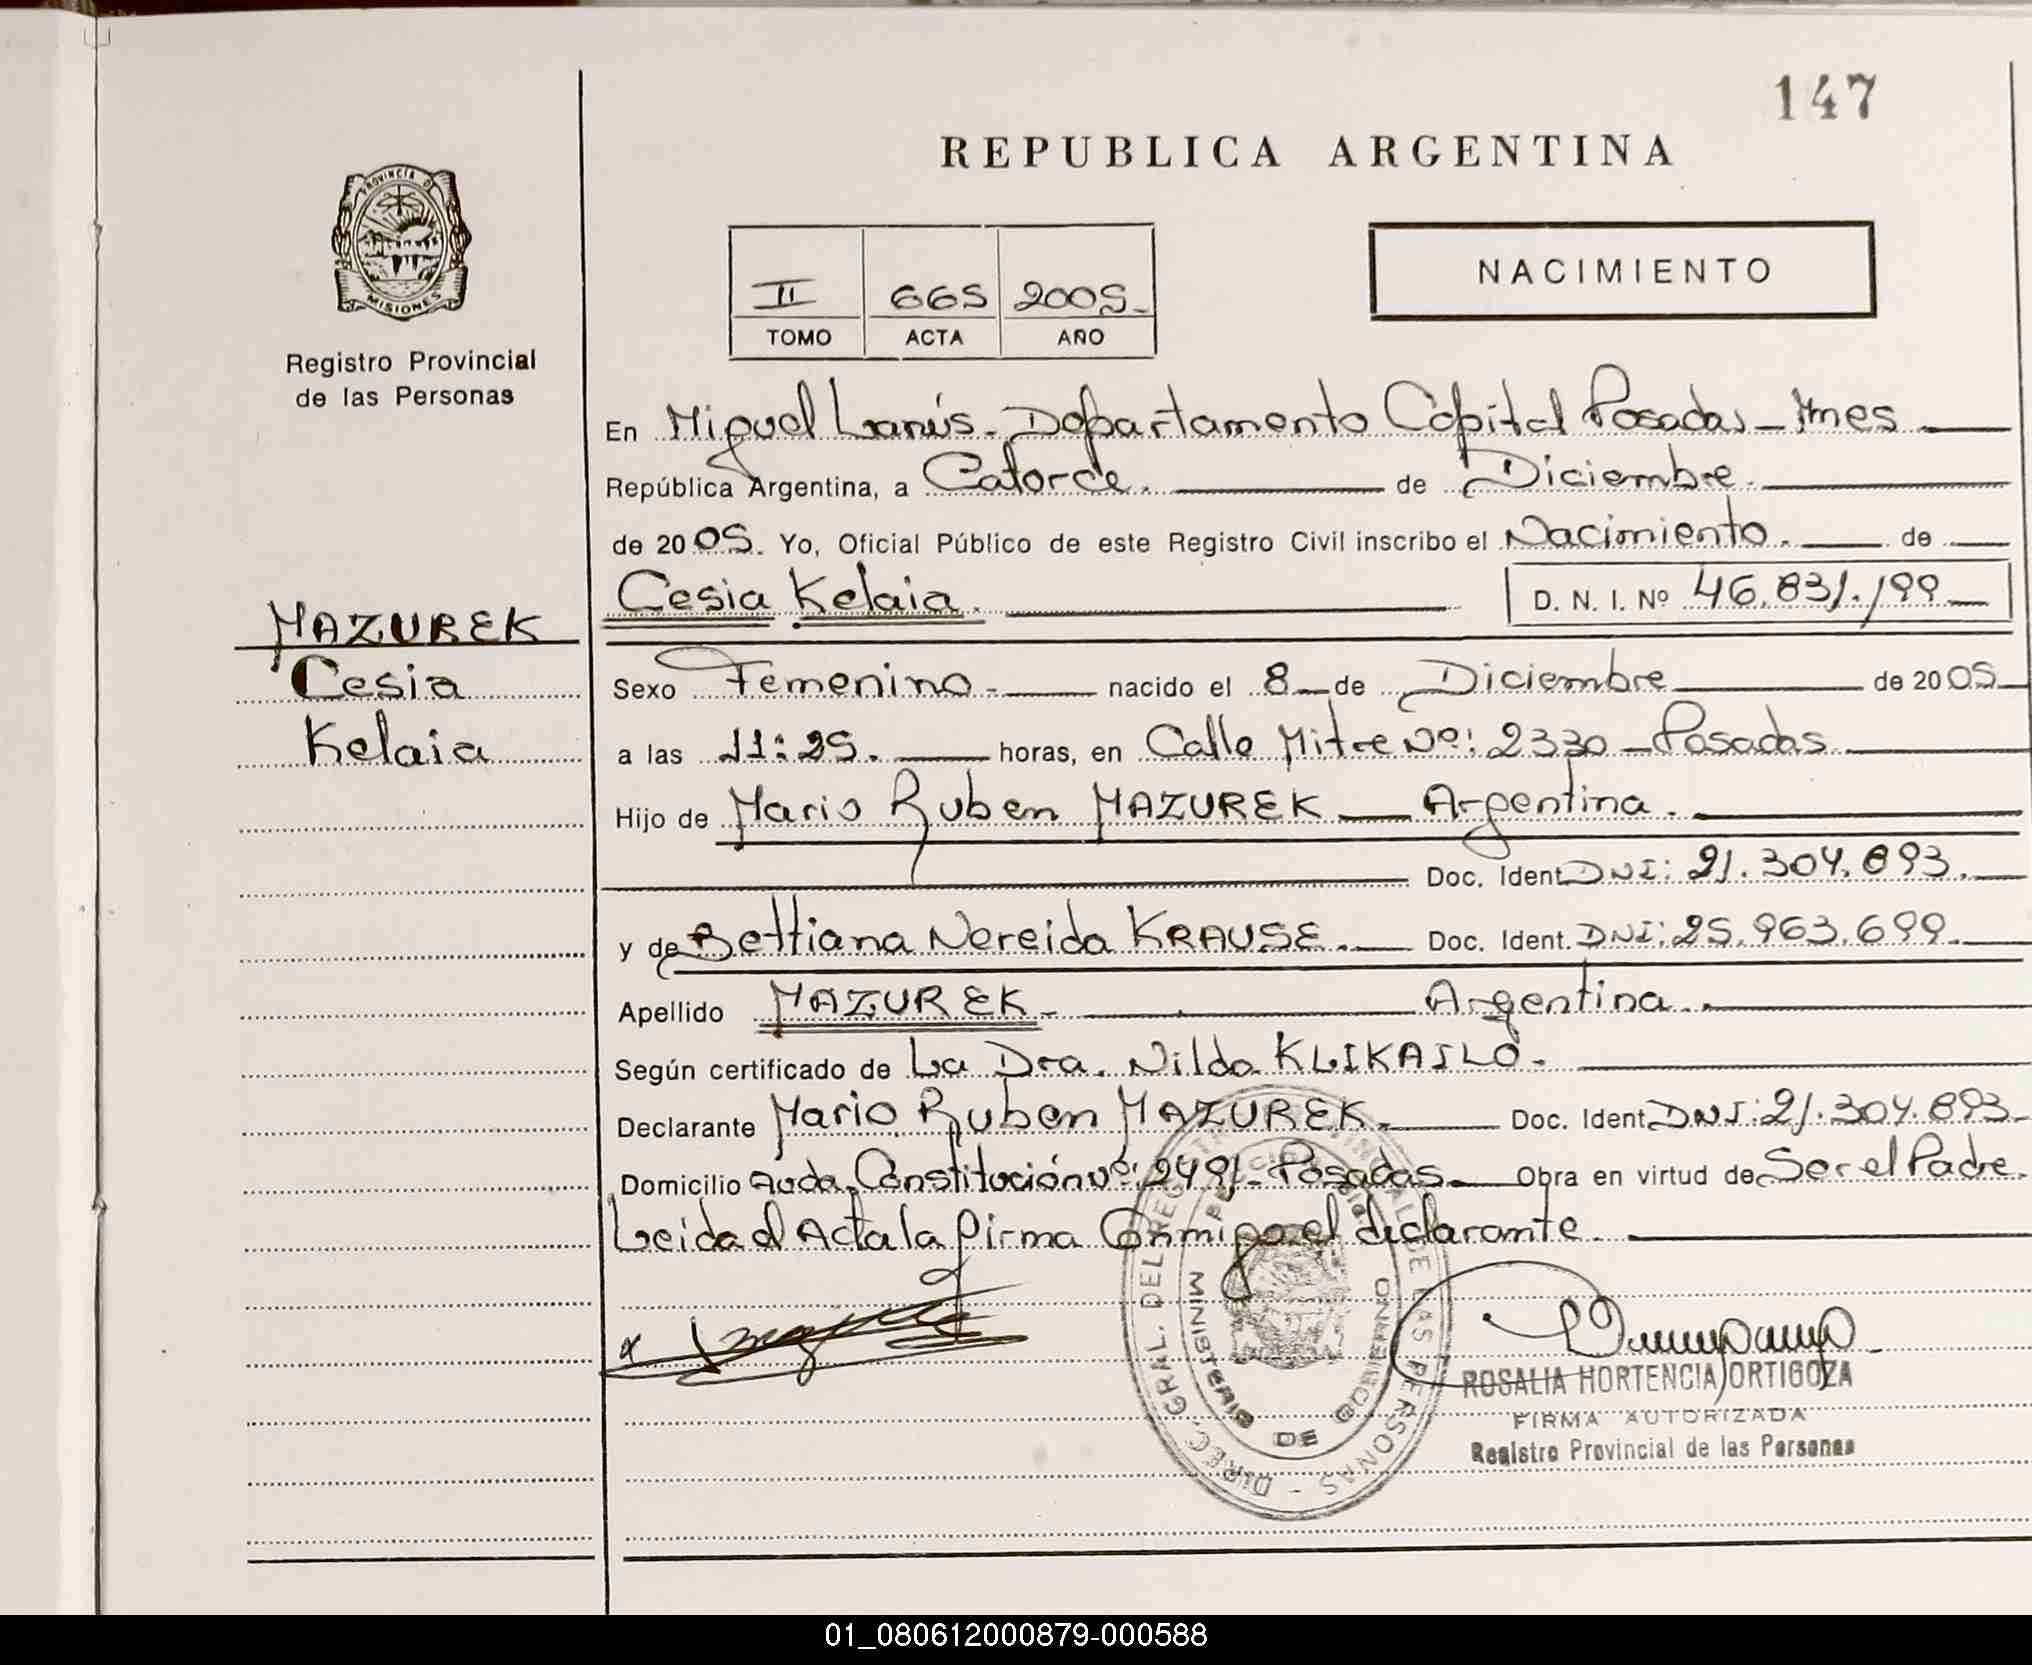 147
REPUBLICA ARGENTINA
PROVINCIA DE
MISIONES
Registro Provincial
de las Personas
II 665 2005
TOMO ACTA AÑO
NACIMIENTO
En Miguel Lanús. Departamento Capital Posadas - Mnes
República Argentina, a Catorce. de Diciembre.
de 2005. Yo, Oficial Público de este Registro Civil inscribo el Nacimiento. de
Cesia Kelaia. D. N. I. Nº 46.831.199
MAZUREK
Cesia
Kelaia
Sexo Femenino. nacido el 8 de Diciembre de 2005
a las 11:25. horas, en Calle Mitre Nº: 2330 - Posadas
Hijo de Mario Ruben MAZUREK Argentina.
Doc. Ident DNI: 21.304.893.
y de Bettiana Nereida KRAUSE. Doc. Ident. DNI: 25.963.699.
Apellido MAZUREK. Argentina.
Según certificado de La Dra. Nilda KLIKAILO.
Declarante Mario Ruben MAZUREK. Doc. Ident DNI: 21.304.893
Domicilio Avda. Constitución Nº: 2491 - Posadas Obra en virtud de Ser el Padre.
Leida el Acta la firma Conmigo el declarante.
DIREC. GRAL. DEL REGISTRO PROVINCIAL DE LAS PERSONAS
MINISTERIO DE GOBIERNO
ROSALIA HORTENCIA ORTIGOZA
FIRMA AUTORIZADA
Registro Provincial de las Personas
01_080612000879-000588